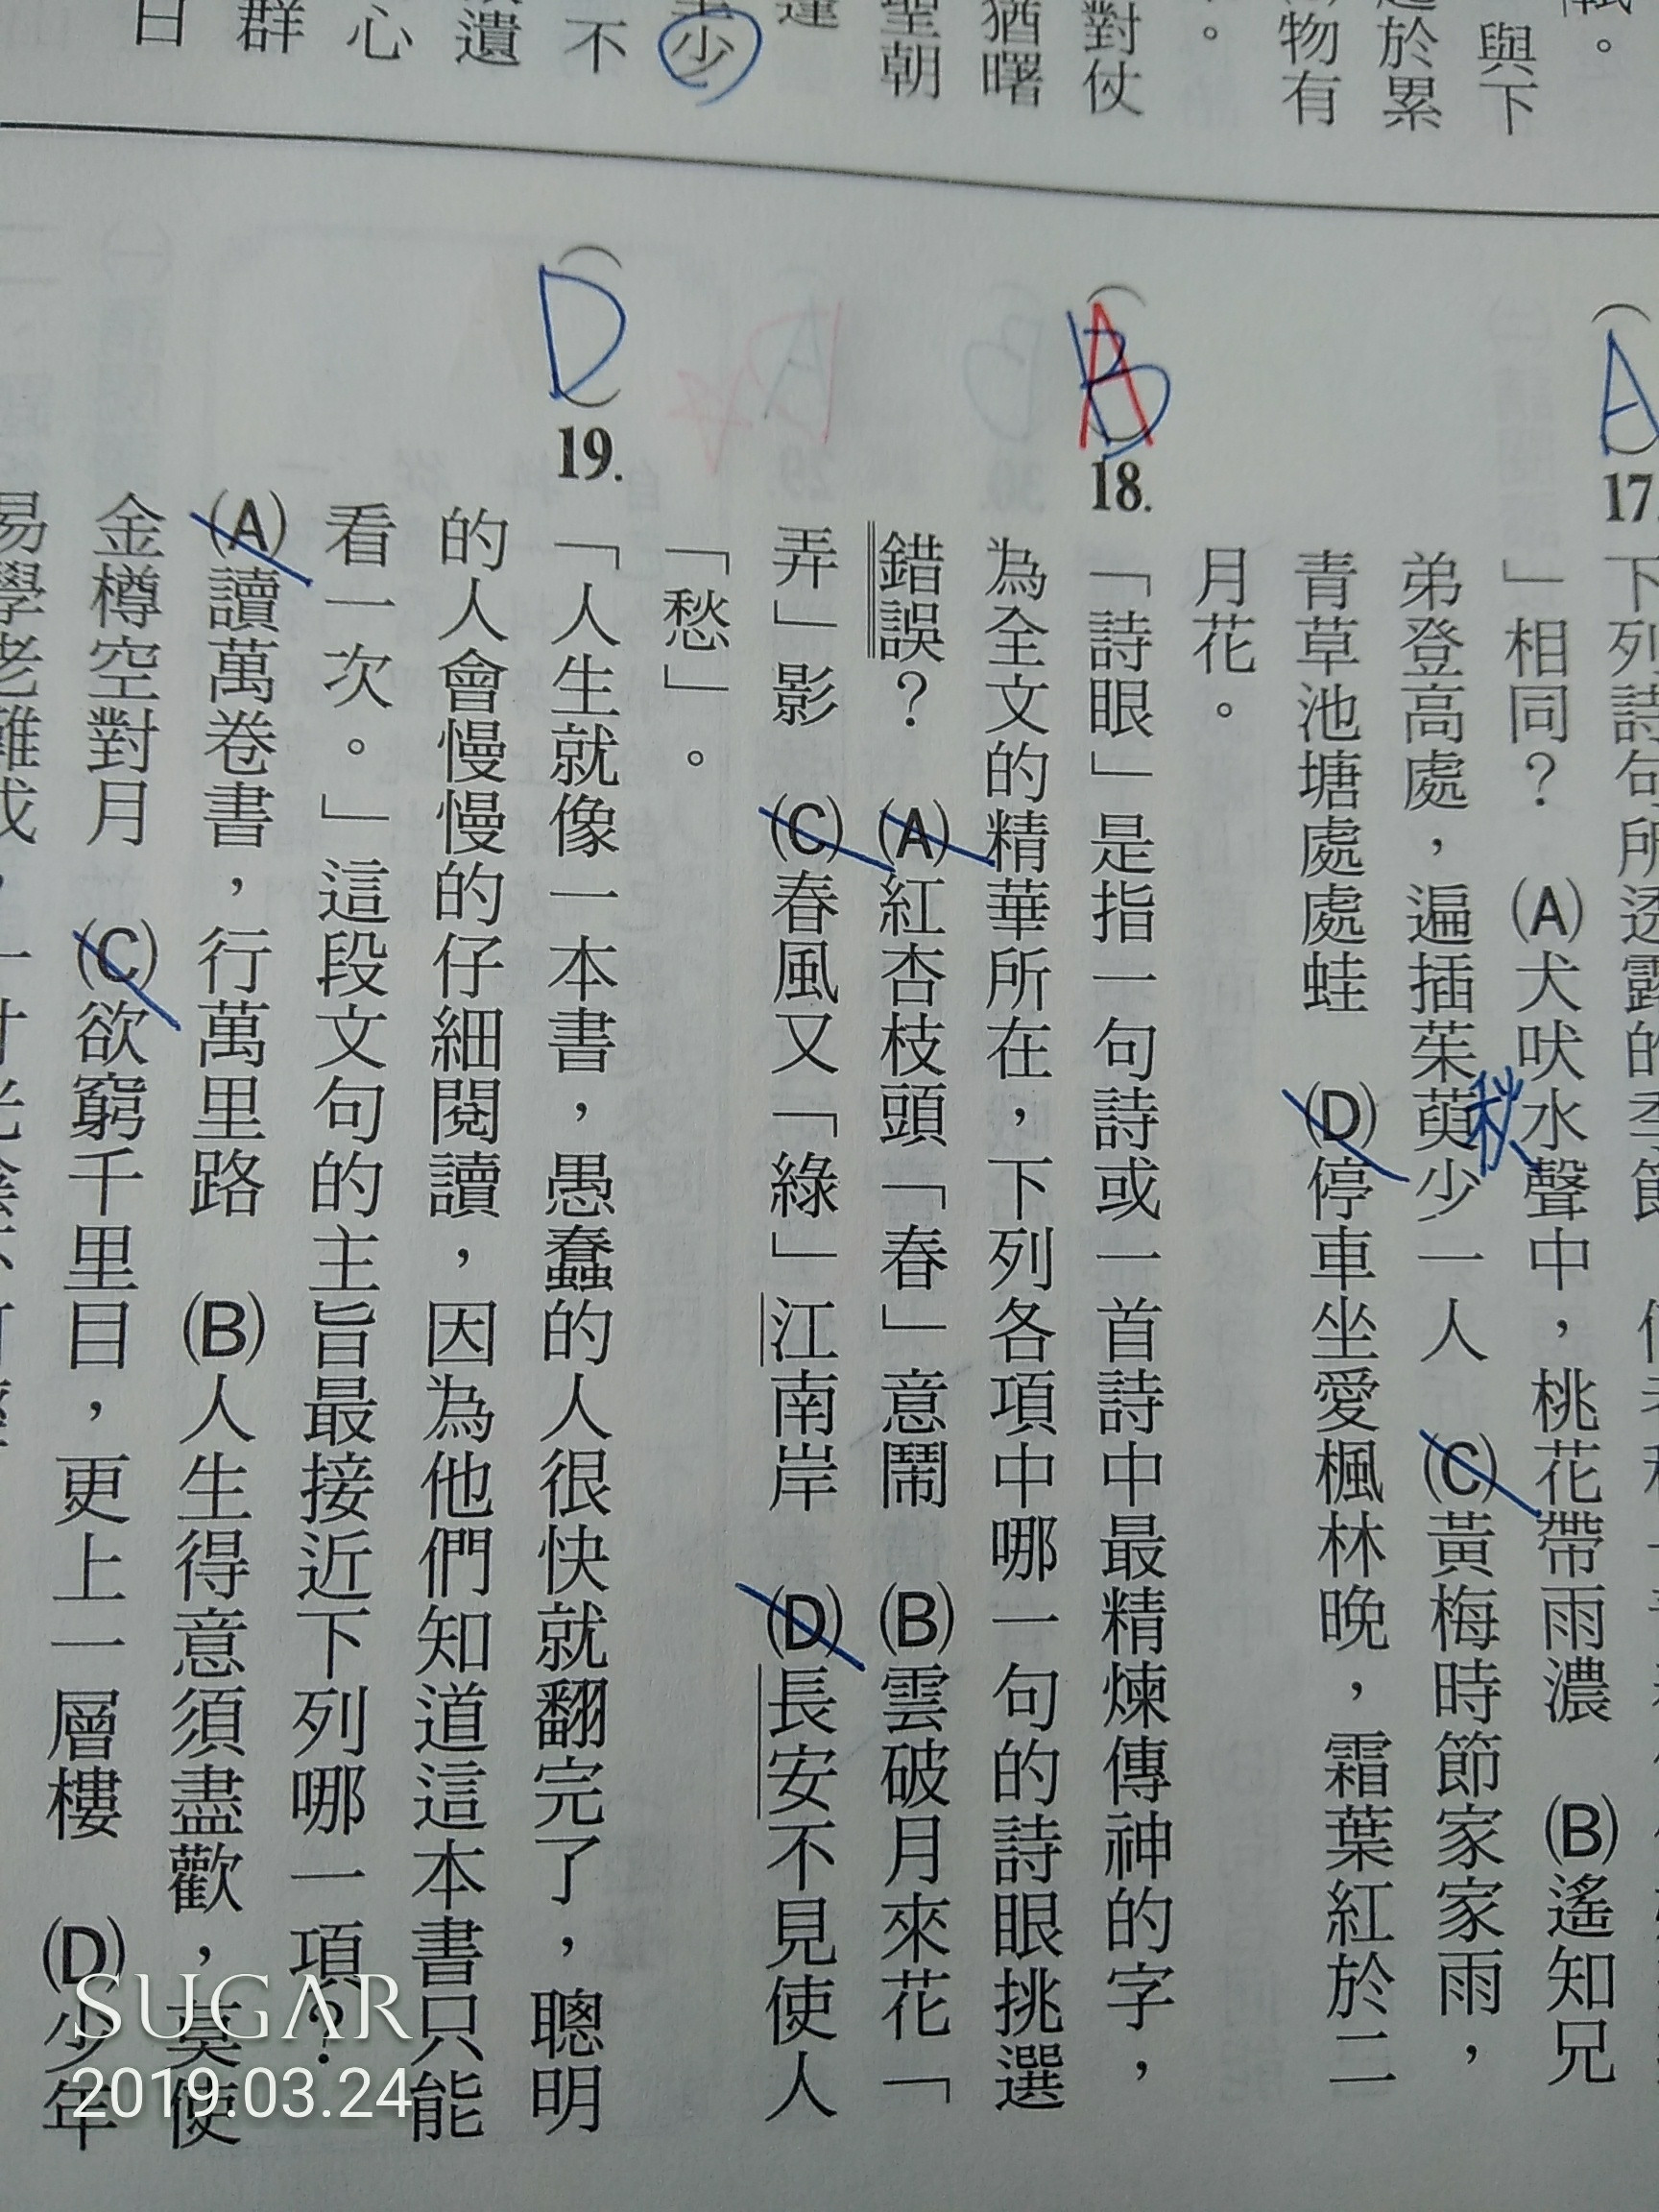 軾。
與下
於累
物有
。
對仗
猶曙
聖朝
少
不
遺
心
群
日
A
17.
下列詩句所透露的季節
」相同？ (A)犬吠水聲中，桃花帶雨濃 (B)遙知兄
弟登高處，遍插茱萸少一人 (C)黃梅時節家家雨，
秋
青草池塘處處蛙 (D)停車坐愛楓林晚，霜葉紅於二
月花。
B
A
18.
「詩眼」是指一句詩或一首詩中最精煉傳神的字，
為全文的精華所在，下列各項中哪一句的詩眼挑選
錯誤？ (A)紅杏枝頭「春」意鬧 (B)雲破月來花「
弄」影 (C)春風又「綠」江南岸 (D)長安不見使人
「愁」。
D
19.
「人生就像一本書，愚蠢的人很快就翻完了，聰明
的人會慢慢的仔細閱讀，因為他們知道這本書只能
看一次。」這段文句的主旨最接近下列哪一項？
(A)讀萬卷書，行萬里路 (B)人生得意須盡歡，莫使
金樽空對月 (C)欲窮千里目，更上一層樓 (D)少年
易學老難成，一寸光陰不可
SUGAR
2019.03.24